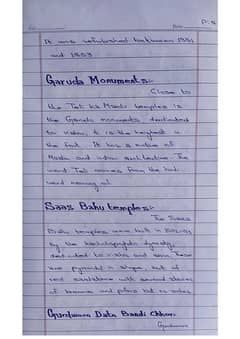 It was refurbished between 1881
and 1883.
Garuda Monuments:-
Close to
the Teli Ka Mandir temples is
the Garuda monuments dedicated
to vishnu, it is the heighest in
the fort. It has a mixture of
Muslim and indian architecture. The
word Teli comes from the hindi
word meaning oil.
Saas Bahu temples:-
The Saas
Bahu temples were built in
by the dynasty,
dedicated to vishnu and shiva, these
are pyramidal in shape, but of
red sandstone with several stories
of beams and pillars but no arches
Gurdwara Data Bandi Chhor:-
Gurdwara